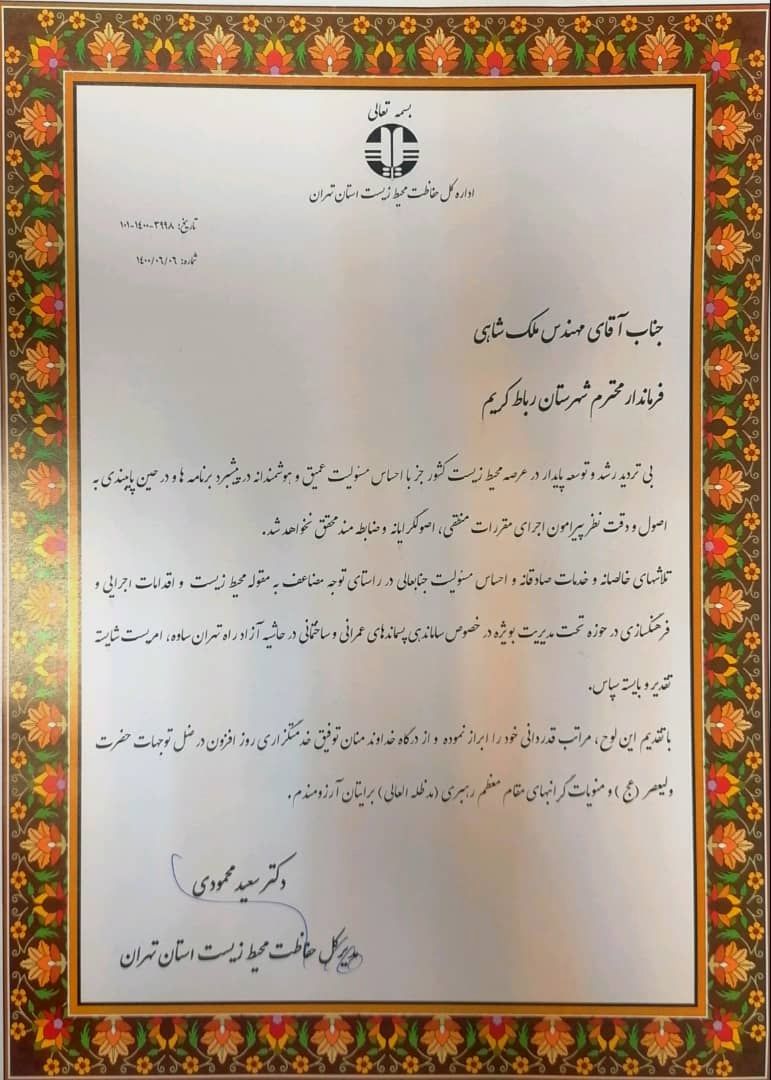 بسمه تعالی
اداره کل حفاظت محیط زیست استان تهران
تاریخ: ۳۹۹۸-۱۴۰۰-۱۰۱
شماره: ۱۴۰۰/۰۶/۰۶
جناب آقای مهندس ملک شاهی
فرماندار محترم شهرستان رباط کریم
بی تردید رشد و توسعه پایدار در عرصه محیط زیست کشور جز با احساس مسئولیت عمیق و هوشمندانه در پیشبرد برنامه ها و در حین پایبندی به
اصول و دقت نظر پیرامون اجرای مقررات منفقی، اصولگرایانه و ضابطه مند محقق نخواهد شد.
تلاشهای خالصانه و خدمات صادقانه و احساس مسئولیت جنابعالی در راستای توجه مضاعف به مقوله محیط زیست و اقدامات اجرایی و
فرهنگسازی در حوزه تحت مدیریت بویژه در خصوص ساماندهی پسماندهای عمرانی و ساختمانی در حاشیه آزاد راه تهران ساوه، امریست شایسته
تقدیر و بایسته سپاس.
با تقدیم این لوح، مراتب قدردانی خود را ابراز نموده و از درگاه خداوند منان توفیق خدمتگزاری روز افزون در ضل توجهات حضرت
ولیعصر (عج) و منویات گرانبهای مقام معظم رهبری (مدظله العالی) برایتان آرزومندم.
دکتر سعید محمودی
مدیر کل حفاظت محیط زیست استان تهران